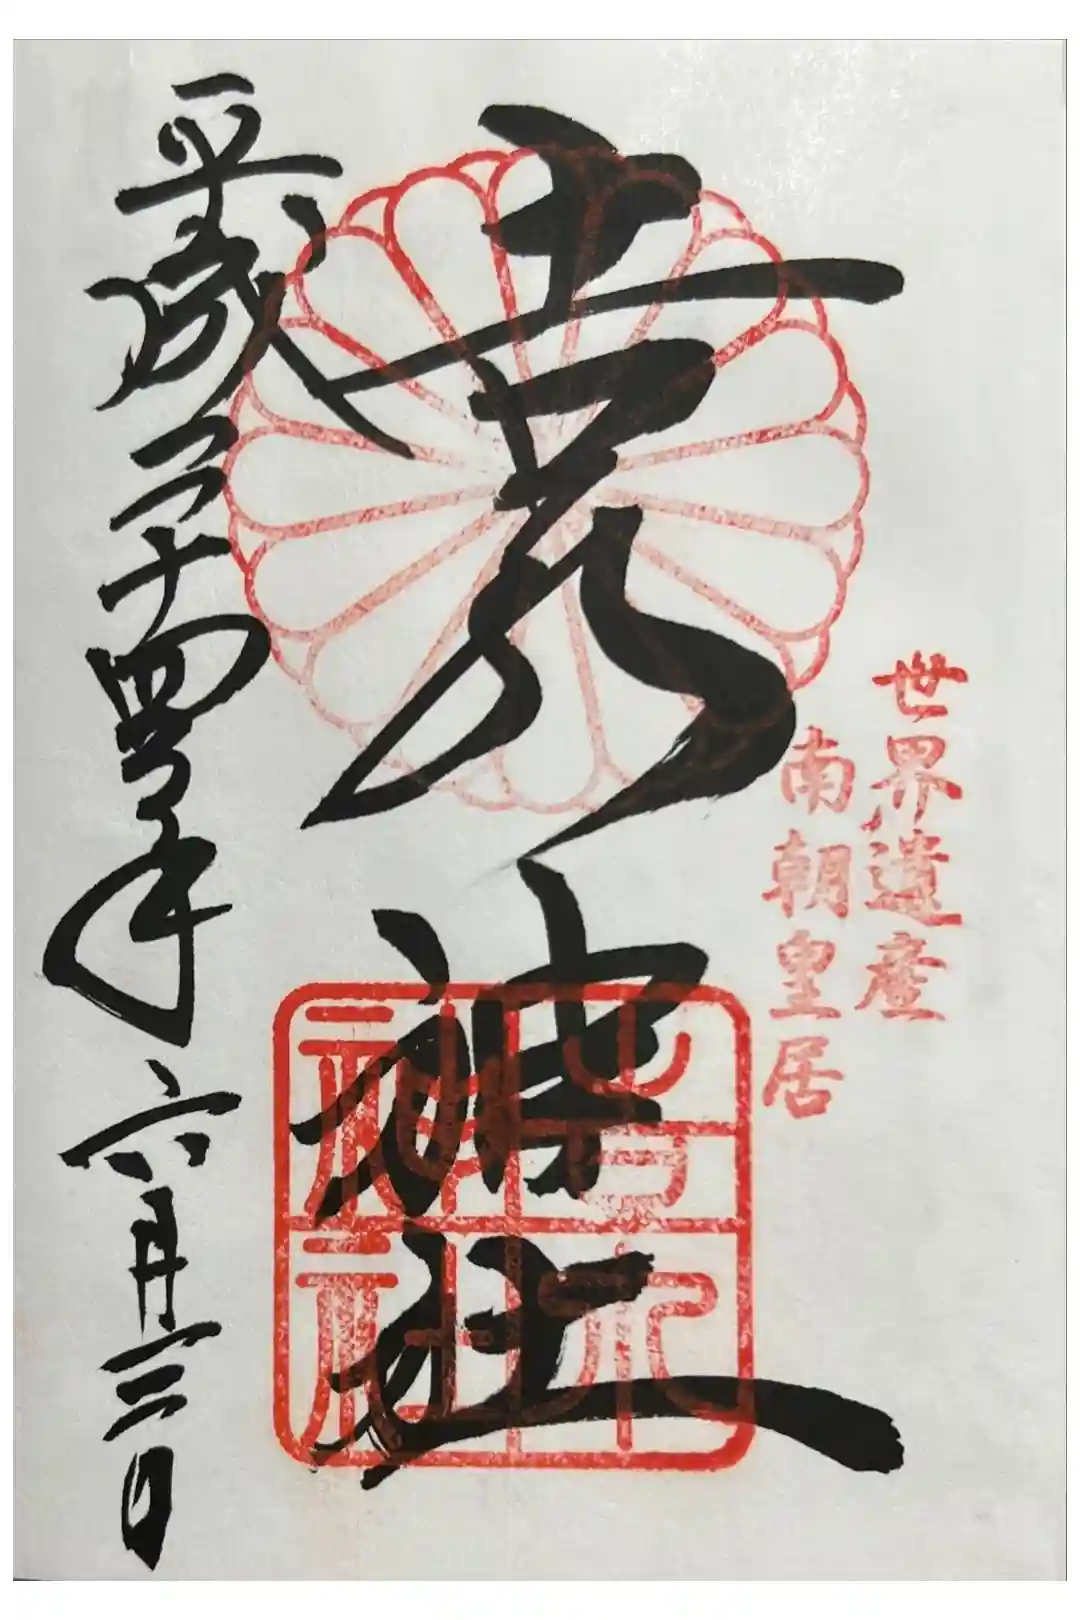 世界遺産
南朝皇居
吉水神社
吉水神社
平成二十四年六月三日